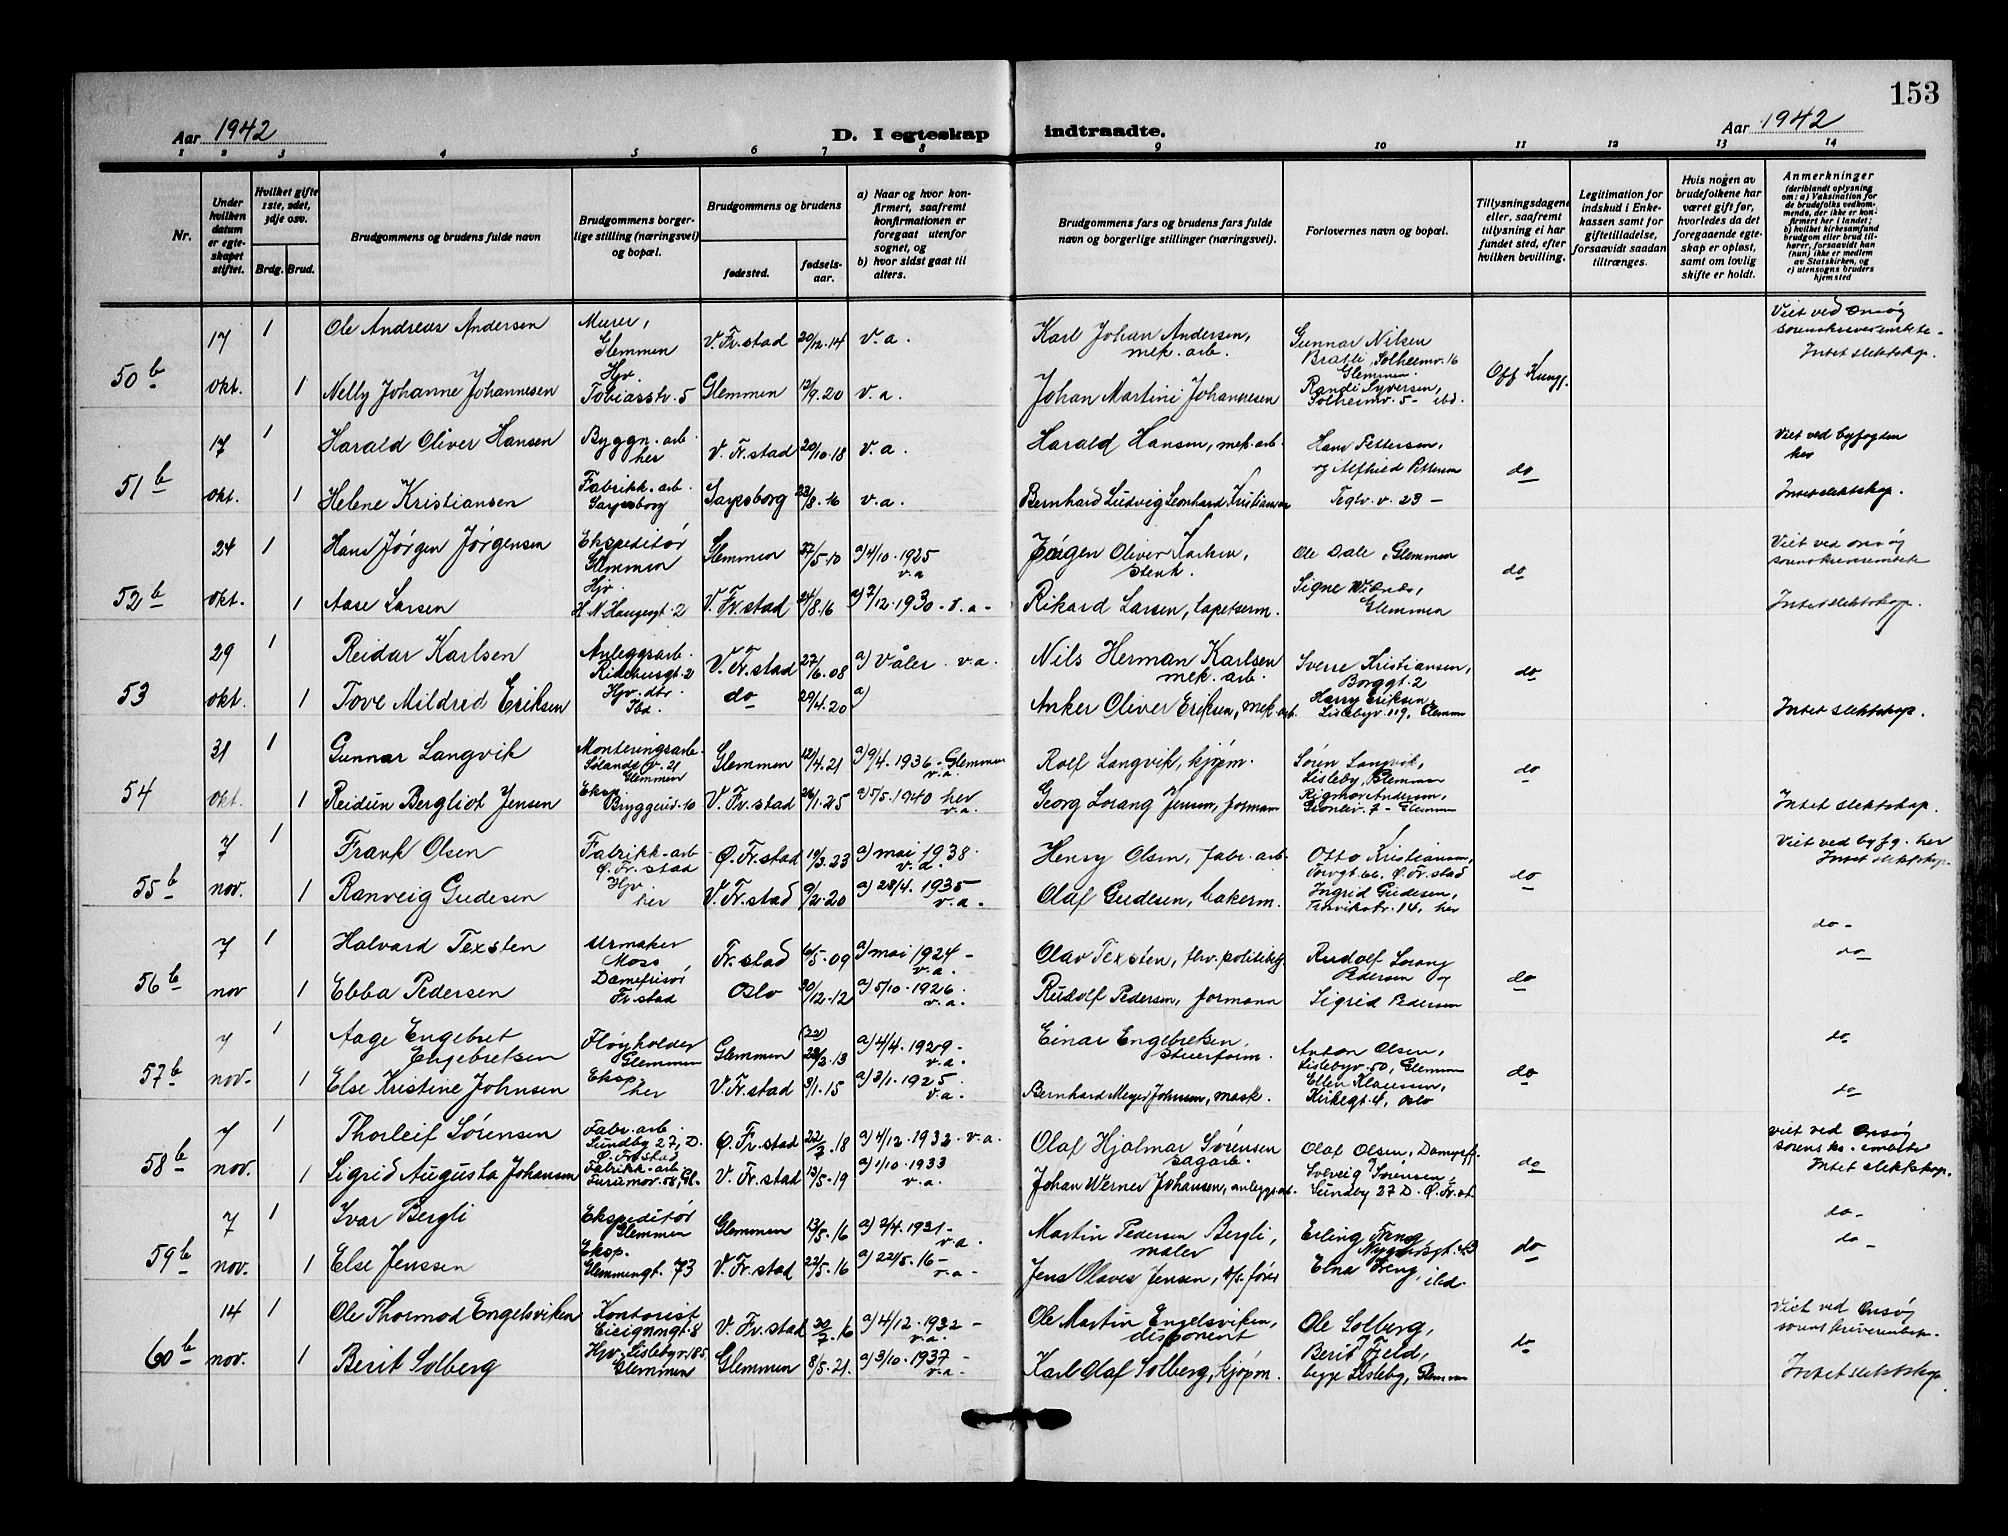 153
Aar 1942
D. I egteskap indtraadte.
Aar 1942
1 2 3 4 5 6 7 8 9 10 11 12 13 14
Nr.
Under hvilken datum er egteskapet stiftet.
Hvilket gifte 1ste, 2det, 3dje osv.
Brdg. Brud.
Brudgommens og brudens fulde navn
Brudgommens borgerlige stilling (næringsvei) og bopæl.
Brudgommens og brudens
fødested.
fødselsaar.
a) Naar og hvor konfirmert, saafremt konfirmationen er foregaat utenfor sognet, og
b) hvor sidst gaat til alters.
Brudgommens fars og brudens fars fulde navn og borgerlige stillinger (næringsvei).
Forlovernes navn og bopæl.
Tillysningsdagene eller, saafremt tillysning ei har fundet sted, efter hvilken bevilling.
Legitimation for indskud i Enkekassen samt for giftetilladelse, forsaavidt saadan tiltrænges.
Hvis nogen av brudefolkene har været gift før, hvorledes da det foregaaende egteskap er opløst, samt om lovlig skifte er holdt.
Anmerkninger
(deriblandt oplysning om: a) Vaksination for de brudefolks vedkommende, der ikke er konfirmert her i landet; b) hvilket kirkesamfund brudgom eller brud tilhører, forsaavidt han (hun) ikke er medlem av Statskirken, og c) utensogns bruders hjemsted
50b 17 okt.
1 Ole Andreas Andersen Murer, Glemmen V. Fr.stad 20/12.14 v.a. Karl Johan Andersen, mek. arb. Gunnar Nilsen Bratli, Solheimv. 16 Glemmen.
Viet ved Onsøy sorenskriverembete. Intet slektskap.
1 Nelly Johanne Johannesen Hjv. Tobiassh. 5 Glemmen 12/9.20 v.a. Johan Martini Johannesen Randi Syversen, Solheimv. 5 - ibd.
51b 17 okt.
1 Harald Oliver Hansen Byggn. arb. her V. Fr.stad 20/10.18 v.a. Harald Hansen, mek. arb. Hans Pettersen, do Viet ved byfogden her
1 Helene Kristiansen Fabrikk. arb. Sarpsborg Sarpsborg 23/8.16 v.a. Bernhard Ludvig Leonhard Kristiansen og Alfhild Pettersen Teglv. v. 23 - Intet slektskap.
52b 24 okt.
1 Hans Jørgen Jørgensen Ekspeditør Glemmen Glemmen 27/5.10 a) 4/10.1925 v.a. Ole Dale, Glemmen do Viet ved Onsøy sorenskriverembete
1 Aase Larsen Hjv. H.N. Haugesgt. 2 V. Fr.stad 24/8.16 a) 7/12.1930 - v.a. - Rikard Larsen, tapetserm. Signe Glemmen Intet slektskap.
53 29 okt.
1 Reidar Karlsen Anleggsarb. Ridehusgt. 2 V. Fr.stad 27/6.08 a) Våler. v.a. Nils Herman Karlsen mek. arb. Sverre Kristiansen, Borggt. 2 do
1 Tove Mildred Eriksen Hjv. dtr. Ibd. do 29/4.20 a) Anker Oliver Eriksen, mek. arb. Harry Eriksen, Lislebyv. 119, Glemmen Intet slektskap.
54 31 okt.
1 Gunnar Langvik Monteringsarb. Glemmen Glemmen 12/4.21 a) 9/4.1936 - Glemmen v.a. Rolf Langvik, kjøpm. Søren Langvik, Lisleby, Glemmen do
1 Reidun Bergliot Jensen Eksp. V. Fr.stad 26/1.25 a) 5/5.1940 her v.a. Georg Lorang Jensen, formann Rigmor Andersen, Glemmen Intet slektskap.
55b 7 nov.
1 Frank Olsen Fabrikk. arb. Ø. Fr.stad Ø. Fr.stad 19/3.23 a) mai 1938. v.a. Henry Olsen, fabr. arb. Otto Kristiansen, Torvgt. 66, Ø. Fr.stad do Viet ved byfg. her Intet slektskap.
1 Ranveig Gudesen Hjv. her V. Fr.stad 9/2.20 a) 28/4.1935 v.a. Olaf Gudesen, bakerm. Ingrid Gudesen, 14, her do -
56b 7 nov
1 Halvard Texsten Urmaker Moss Fr.stad 6/5.09 a) mai 1924 - v.a. Olav Texsten, Rudolf Lorang Pedersen og do
1 Ebba Pedersen Damefrisør Fr.stad Oslo 20/12.12 a) 5/10.1926. v.a. Rudolf Pedersen, formann Sigrid Pedersen
57b 7 nov.
1 Aage Engebret Engebretsen Fløyholder Glemmen Glemmen (22) 28/3.13 a) 4/4.1929 - v.a. Einar Engebretsen, Anton Olsen, Lislebyv. 50, Glemmen do do
1 Else Kristine Johnsen Eksp. her V. Fr.stad 9/1.15 a) 3/1.1925. v.a. Bernhard Meyer Johnsen, mask. Ellen Klaussen, Kirkegt. 4, Oslo do
58b 7 nov.
1 Thorleif Sørensen Fabr. arb. Sundby 27, D. Ø. Fr.stad Ø. Fr.stad 22/7.18 a) 4/12.1932. v.a. Olaf Hjalmar Sørensen sagarb. Olaf Olsen, do Viet ved Onsøy sorenskr. embete
1 Sigrid Augusta Johansen Fabrikk. arb. Furumov. 58, Gl. V. Fr.stad 13/5.19 a) 1/10.1933 v.a. Johan Werner Johansen, anleggsarb. Solveig Sørensen, Sundby 27 D. Ø. Fr.st. Intet slektskap.
59b 7 nov.
1 Ivar Bergli Ekspeditør Glemmen Glemmen 13/5.16 a) 2/4.1931 - v.a. Martin Pedersen Bergli, maler Erling Treng do do -
1 Else Jenssen Eksp. Glemmengt. 73 V. Fr.stad 22/5.16 a) 22/5.16 - v.a. - Jens Olaves Jensen, Elna Treng, ibd. do -
60b 14 nov.
1 Ole Thormod Engelsviken Kontorist V. Fr.stad 20/7.16 a) 4/12.1932 - v.a. Ole Martin Engelsviken, disponent Ole Solberg, do Viet ved Onsøy sorenskriverembete.
1 Berit Solberg Hjv. Lislebyv. 185, Glemmen Glemmen 8/5.21. a) 3/10.1937 - v.a. Karl Olaf Solberg, kjøpm. Berit Fjeld, begge Lisleby, Glemmen Intet slektskap.